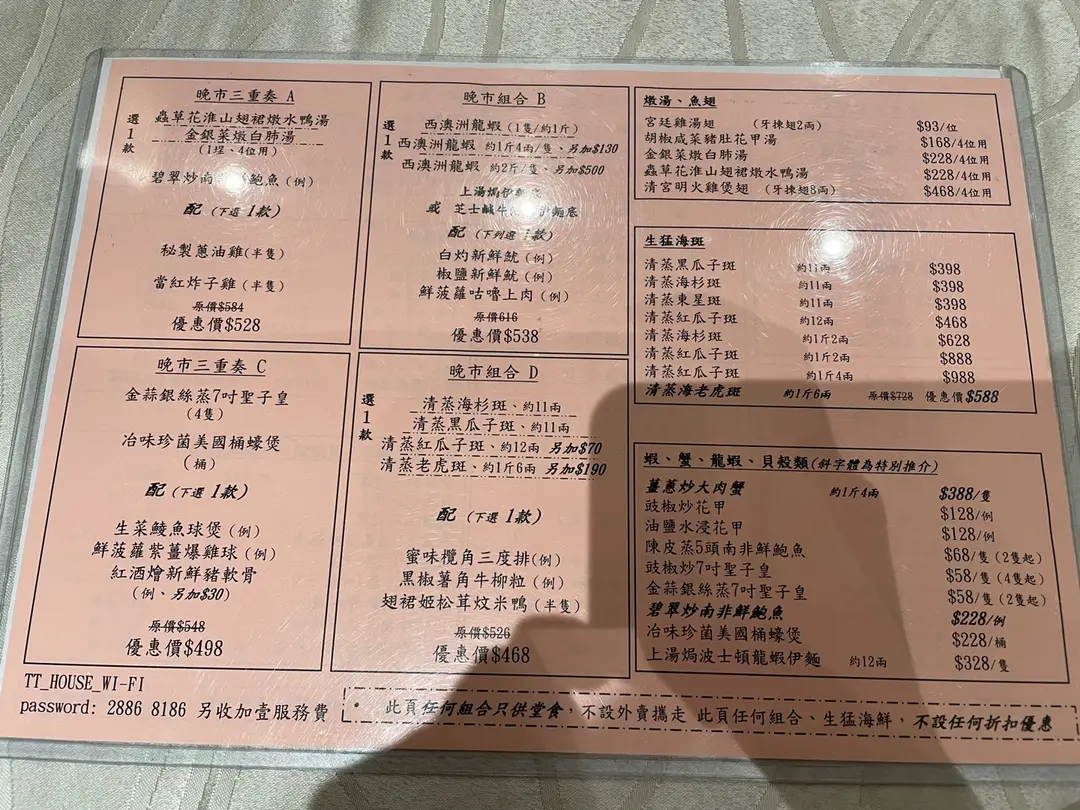 晚市三重奏 A
選1款
蟲草花淮山翅裙燉水鴨湯
金銀菜燉白肺湯
(1埕、4位用)
碧翠炒南 鮑魚 (例)
配 (下選 1款)
秘製蔥油雞(半隻)
當紅炸子雞 (半隻)
原價$584
優惠價$528
晚市組合 B
選1款
西澳洲龍蝦 (1隻/約1斤)
西澳洲龍蝦 約1斤4兩/隻、另加$130
西澳洲龍蝦 約2斤/隻、另加$500
上湯焗伊
或 芝士鹹牛 麵底
配 (下列選 1款)
白灼新鮮魷 (例)
椒鹽新鮮魷 (例)
鮮菠蘿咕嚕上肉 (例)
原價616
優惠價$538
晚市三重奏 C
金蒜銀絲蒸7吋聖子皇
(4隻)
冶味珍菌美國桶蠔煲
(桶)
配 (下選 1款)
生菜鯪魚球煲 (例)
鮮菠蘿紫薑爆雞球 (例)
紅酒燴新鮮豬軟骨
(例、另加$30)
原價$548
優惠價$498
晚市組合 D
選1款
清蒸海杉斑、約11兩
清蒸黑瓜子斑、約11兩
清蒸紅瓜子斑、約12兩 另加$70
清蒸老虎斑、約1斤6兩 另加$190
配 (下選 1款)
蜜味欖角三度排(例)
黑椒薯角牛柳粒 (例)
翅裙姬松茸炆米鴨 (半隻)
原價$526
優惠價$468
燉湯、魚翅
宮廷雞湯翅 (牙揀翅2兩) $93/位
胡椒咸菜豬肚花甲湯 $168/4位用
金銀菜燉白肺湯 $228/4位用
蟲草花淮山翅裙燉水鴨湯 $228/4位用
清宮明火雞煲翅 (牙揀翅8兩) $468/4位用
生猛海斑
清蒸黑瓜子斑 約11兩 $398
清蒸海杉斑 約11兩 $398
清蒸東星斑 約11兩 $398
清蒸紅瓜子斑 約12兩 $468
清蒸海杉斑 約1斤2兩 $628
清蒸紅瓜子斑 約1斤2兩 $888
清蒸紅瓜子斑 約1斤4兩 $988
清蒸海老虎斑 約1斤6兩 原價$728 優惠價$588
蝦、蟹、龍蝦、貝殼類(斜字體為特別推介)
薑蔥炒大肉蟹 約1斤4兩 $388/隻
豉椒炒花甲 $128/例
油鹽水浸花甲 $128/例
陳皮蒸5頭南非鮮鮑魚 $68/隻 (2隻起)
豉椒炒7吋聖子皇 $58/隻 (4隻起)
金蒜銀絲蒸7吋聖子皇 $58/隻 (2隻起)
碧翠炒南非鮮鮑魚 $228/例
冶味珍菌美國桶蠔煲 $228/桶
上湯焗波士頓龍蝦伊麵 約12兩 $328/隻
TT_HOUSE_WI-FI
password: 2886 8186 另收加壹服務費
* 此頁任何組合只供堂食，不設外賣攜走 此頁任何組合、生猛海鮮，不設任何折扣優惠